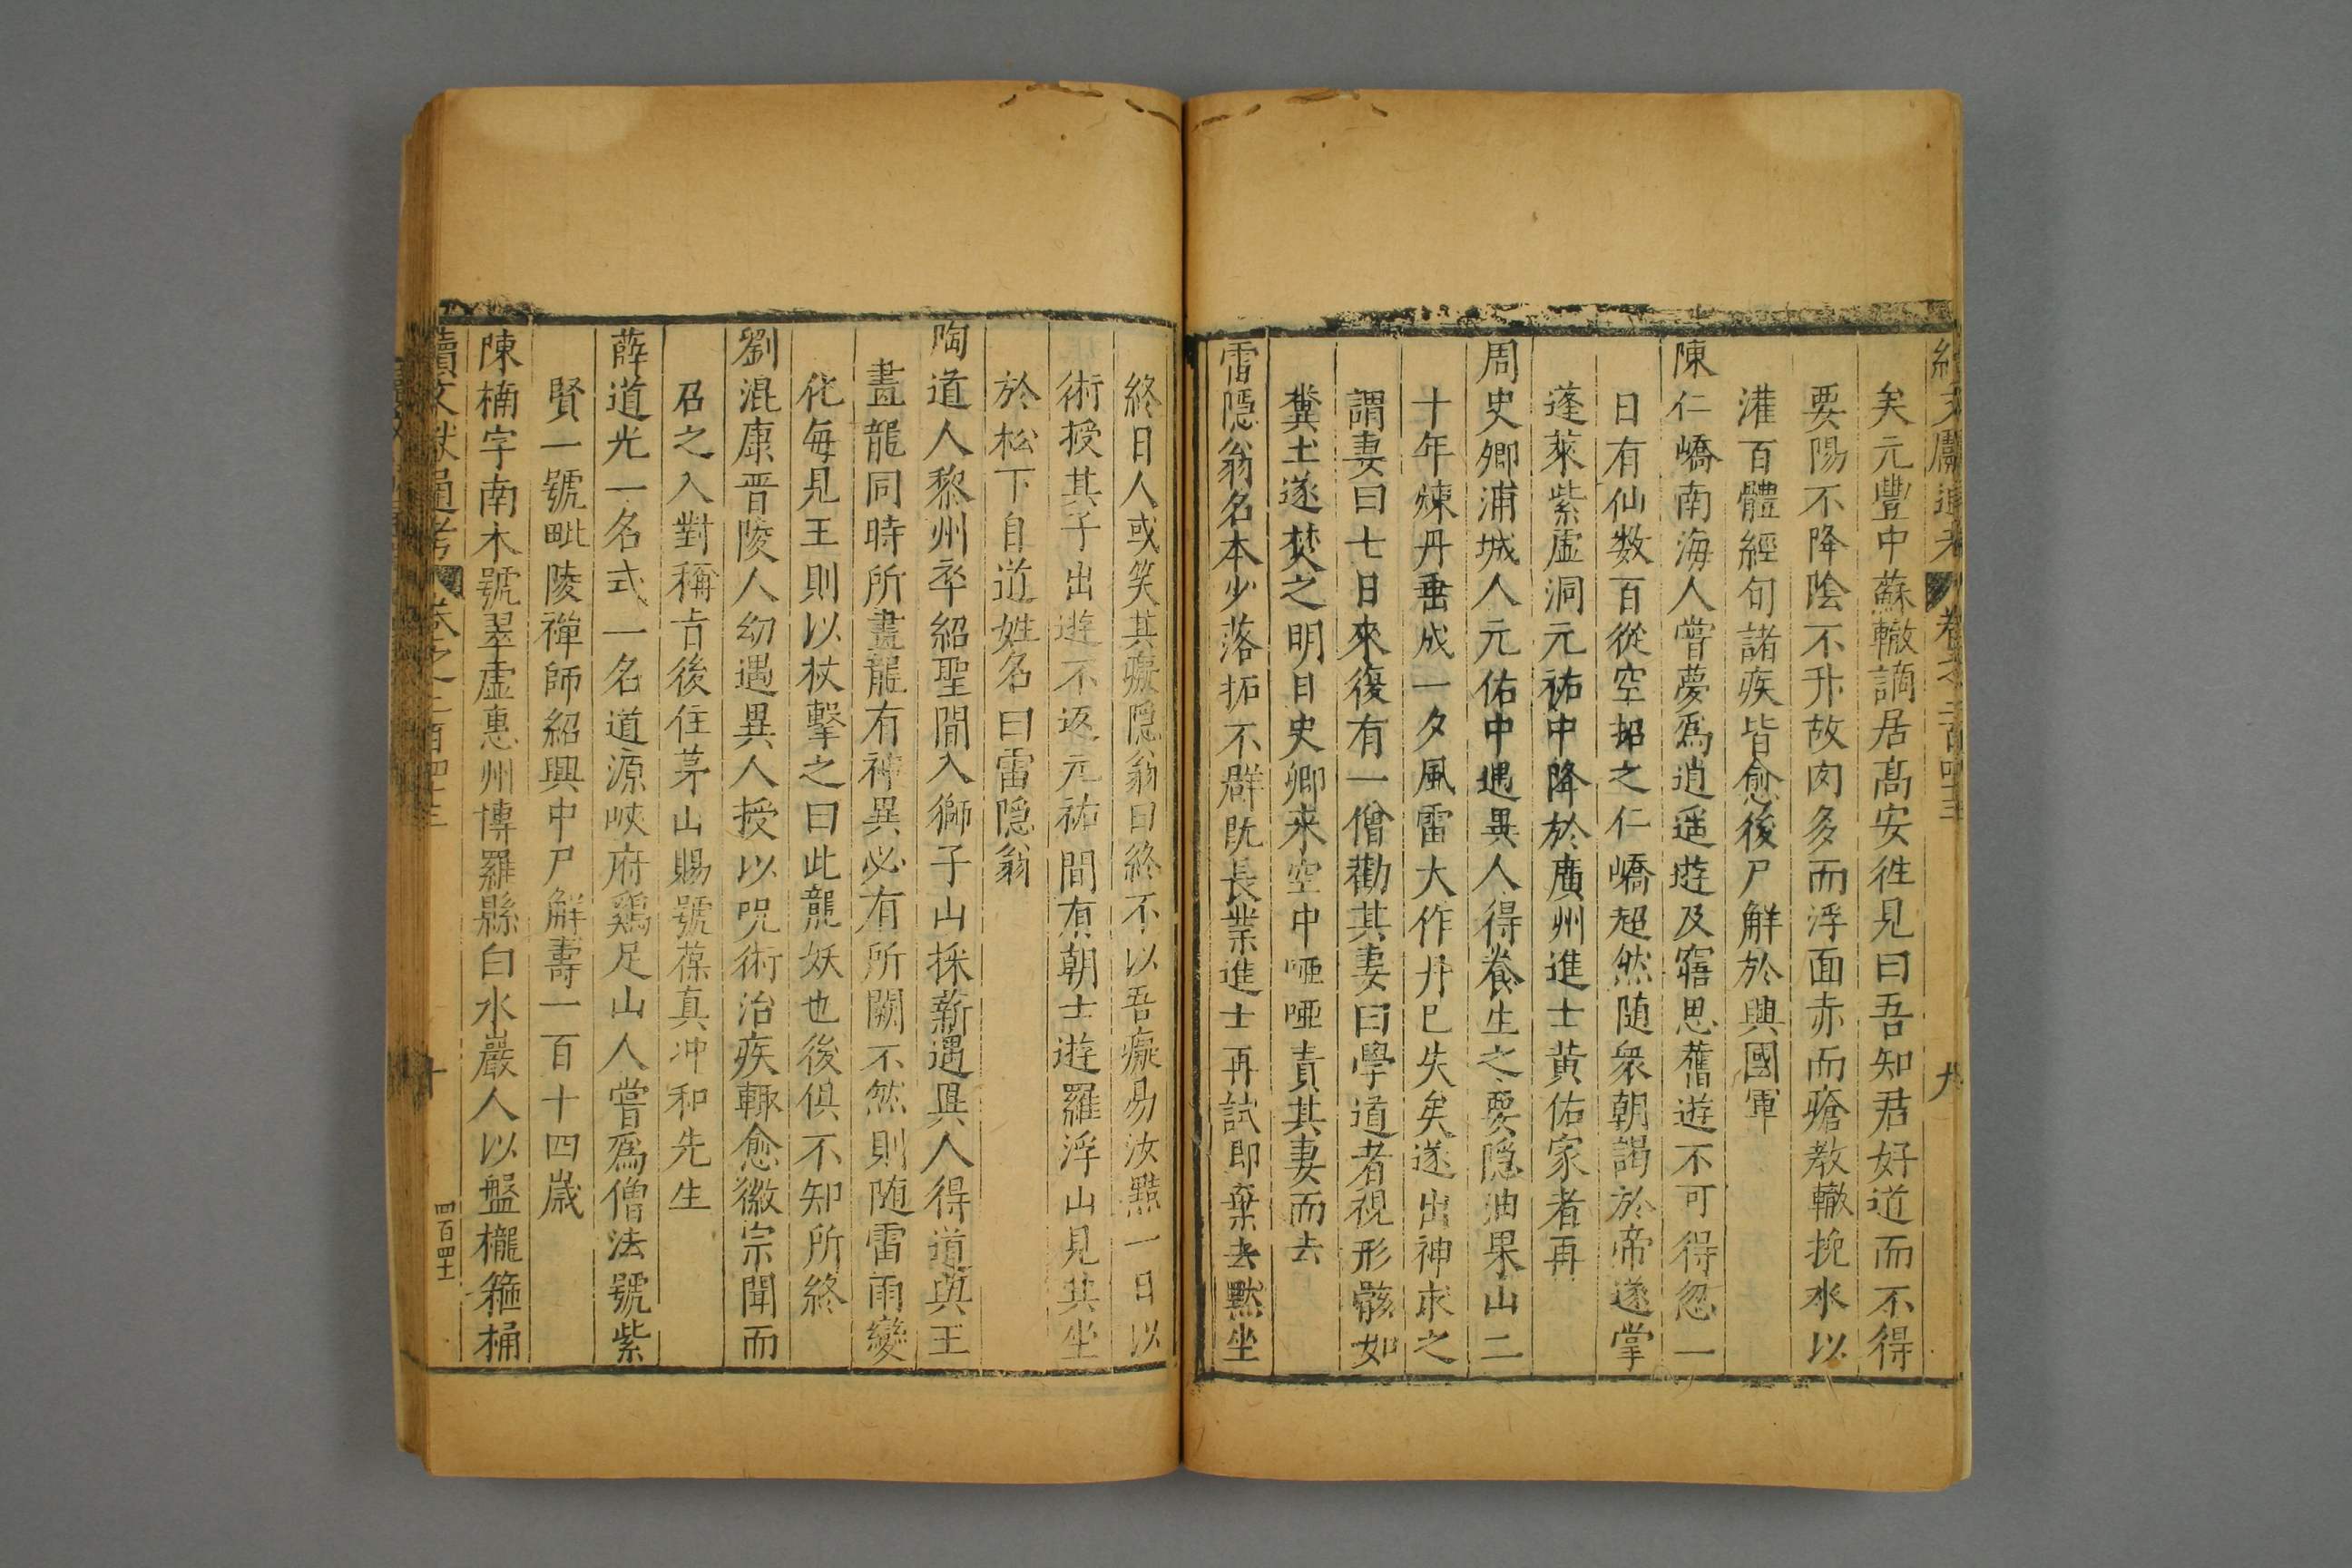 續文獻通考 卷之二百四十三 九
矣元豐中蘇轍謫居高安徃見曰吾知君好道而不得
要陽不降陰不升故肉多而浮面赤而瘡教轍挽水以
灌百體經旬諸疾皆愈後尸解於興國軍
陳仁嶠南海人嘗夢爲逍遥遊及寤思舊遊不可得忽一
日有仙数百從空招之仁嶠超然随衆朝謁於帝遂掌
蓬萊紫虛洞元祐中降於廣州進士黄佑家者再
周史卿浦城人元佑中遇異人得養生之要隠油果山二
十年煉丹垂成一夕風雷大作丹已失矣遂出神求之
謂妻曰七日來復有一僧勸其妻曰學道者視形骸如
糞土遂焚之明日史卿来空中啞啞責其妻而去
雷隠翁名本少落拓不群既長業進士再試即棄去黙坐
終日人或笑其癡隠翁曰終不以吾癡易汝黠一日以
術授其子出遊不返元祐間有朝士遊羅浮山見其坐
於松下自道姓名曰雷隠翁
陶道人黎州卒紹聖間入獅子山採薪遇異人得道與王
畫龍同時所畫龍有神異必有所闕不然則随雷雨變
化每見王則以杖擊之曰此龍妖也後俱不知所終
劉混康晋陵人幼遇異人授以呪術治疾輙愈徽宗聞而
召之入對稱㫖後住茅山賜號葆真冲和先生
薛道光一名式一名道源峽府鷄足山人嘗爲僧法號紫
賢一號毗陵禅師紹興中尸解壽一百十四歳
陳楠字南木號翠虛惠州博羅縣白水巖人以盤櫳箍桶
續文獻通考 卷之二百四十三 十